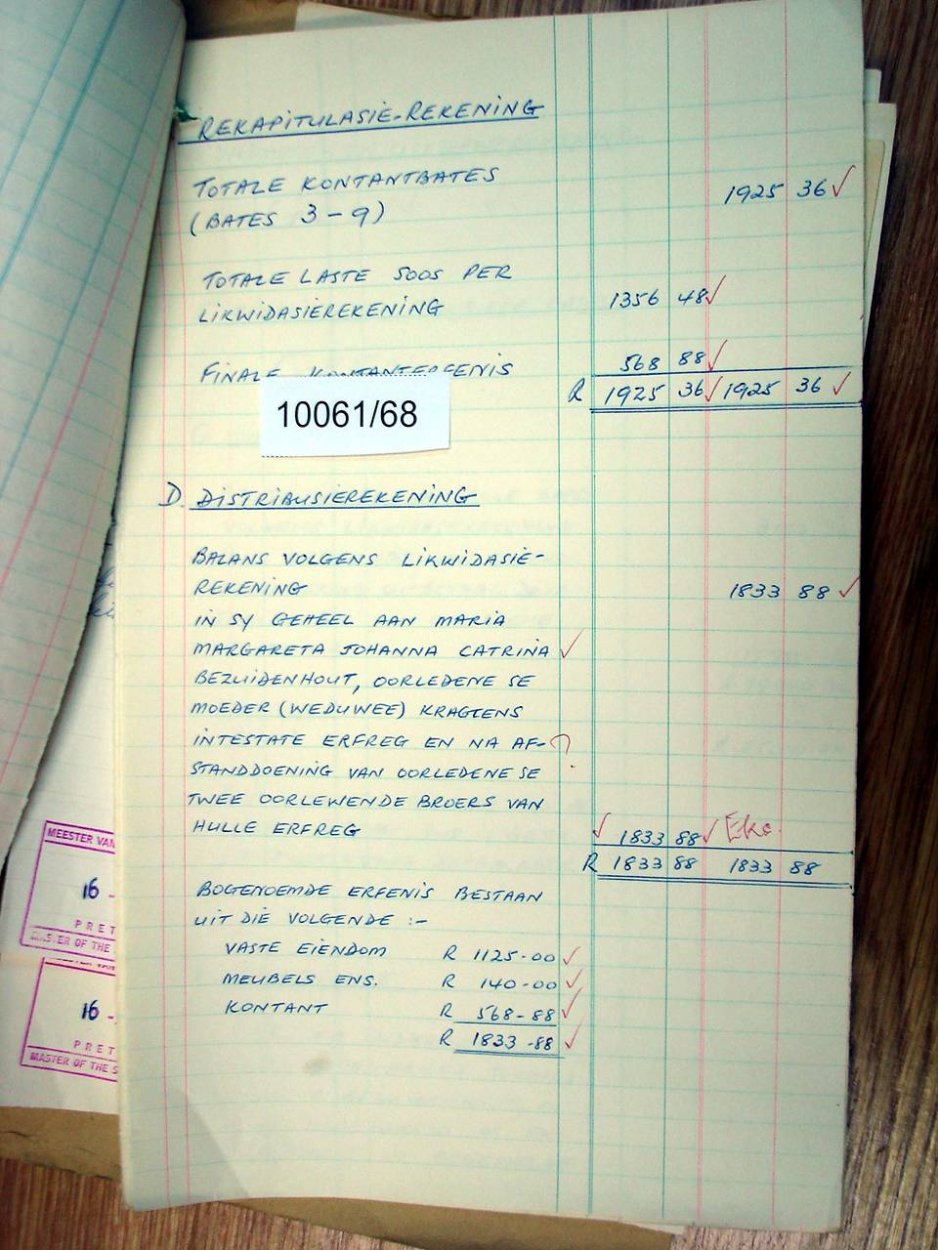 REKAPITULASIE-REKENING
TOTALE KONTANTBATES
(BATES 3-9) 1925 36
TOTALE LASTE SOOS PER
LIKWIDASIEREKENING 1356 48
FINALE KONTANTERFENIS 568 88
R 1925 36 1925 36
10061/68
D. DISTRIBUSIEREKENING
BALANS VOLGENS LIKWIDASIE-
REKENING 1833 88
IN SY GEHEEL AAN MARIA
MARGARETA JOHANNA CATRINA
BEZUIDENHOUT, OORLEDENE SE
MOEDER (WEDUWEE) KRAGTENS
INTESTATE ERFREG EN NA AF- ?
STANDDOENING VAN OORLEDENE SE
TWEE OORLEWENDE BROERS VAN
HULLE ERFREG 1833 88
R 1833 88 1833 88
BOGENOEMDE ERFENIS BESTAAN
UIT DIE VOLGENDE :-
VASTE EIENDOM R 1125-00
MEUBELS ENS. R 140-00
KONTANT R 568-88
R 1833-88
MEESTER VAN
16 -
PRET
OF THE
16 -
PRET
MASTER OF THE S